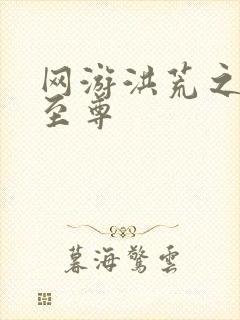 网游洪荒之
至尊
暮海驚雲